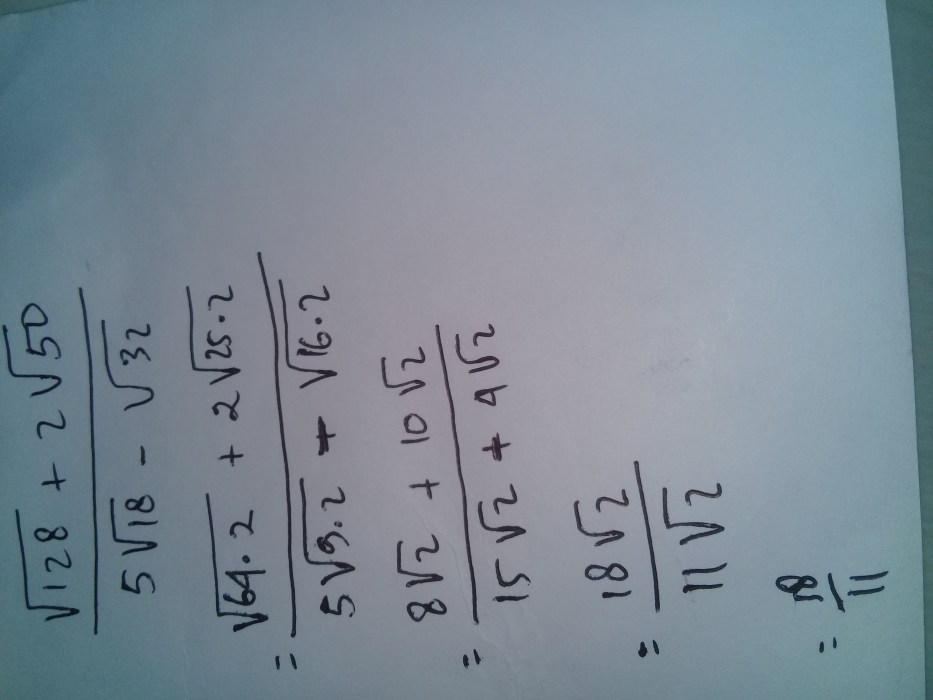 √128 + 2√50
5√18 - √32
= √64·2 + 2√25·2
5√9·2 - √16·2
= 8√2 + 10√2
15√2 - 4√2
= 18√2
11√2
= 18
11